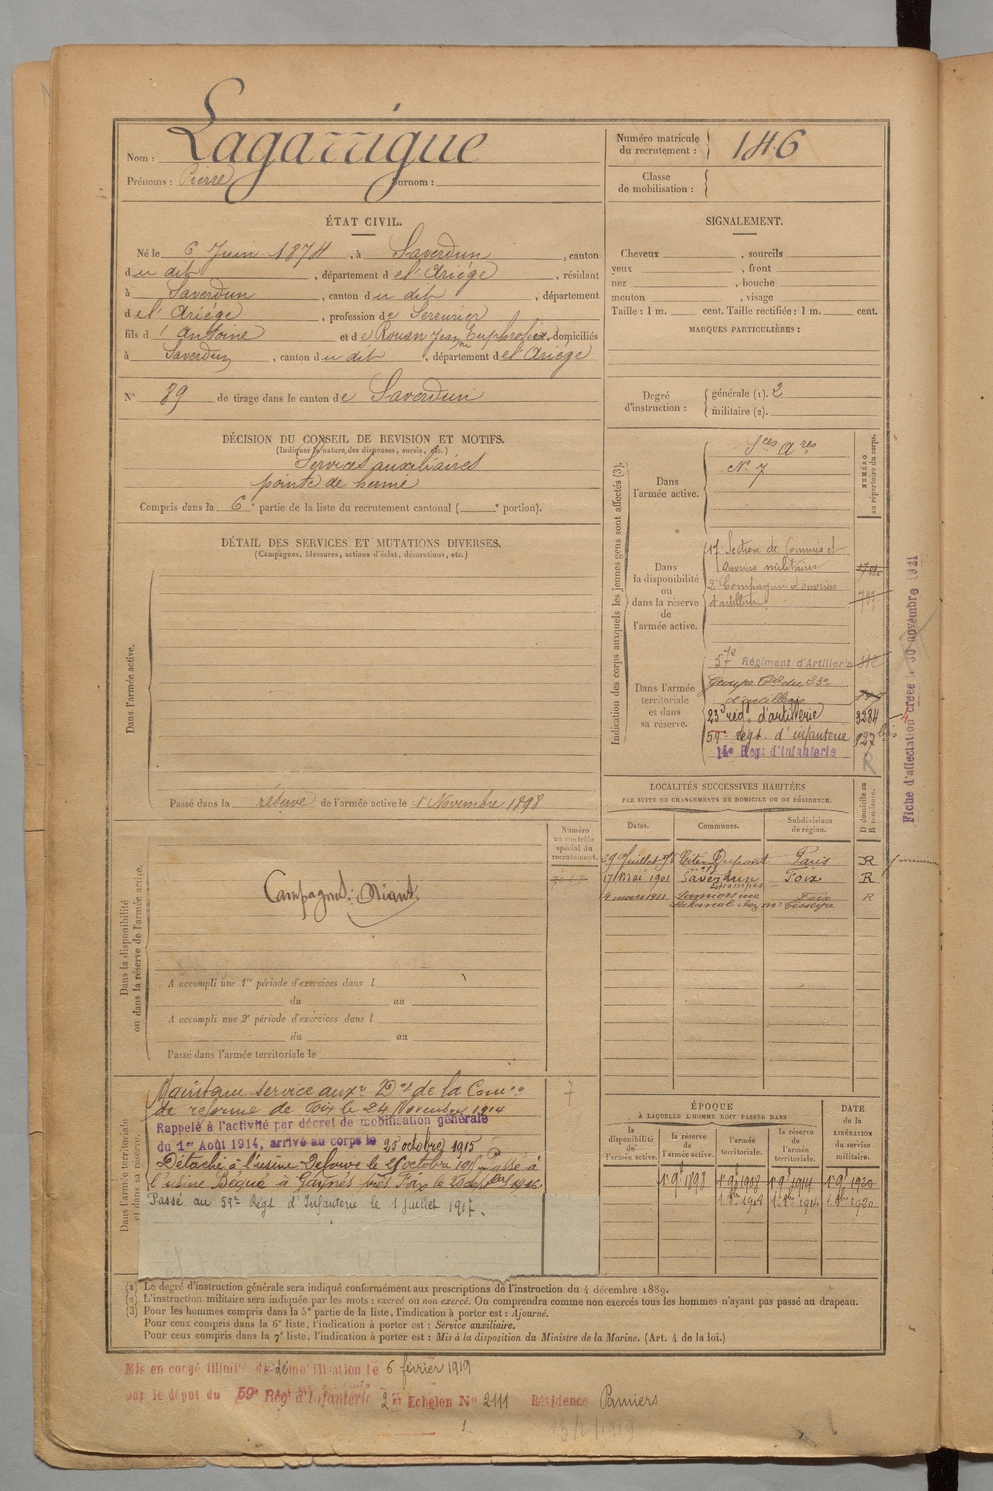 Nom : Lagarrigue
Prénoms : Pierre surnom :
Numéro matricule du recrutement : 146
Classe de mobilisation :
ÉTAT CIVIL.
Né le 6 Juin 1874, à Saverdun, canton
du dit, département de l'Ariége, résidant
à Saverdun, canton du dit, département
de l'Ariége, profession de Serrurier
fils d' Antoine et de Rouan Jeanne Euphrosine, domiciliés
à Saverdun, canton du dit, département de l'Ariége
N° 89 de tirage dans le canton de Saverdun
DÉCISION DU CONSEIL DE REVISION ET MOTIFS.
(Indiquer la nature des dispenses, sursis, etc.)
Services auxiliaires
pointe de hernie
Compris dans la 6e partie de la liste du recrutement cantonal ( e portion).
DÉTAIL DES SERVICES ET MUTATIONS DIVERSES.
(Campagnes, blessures, actions d'éclat, décorations, etc.)
Dans l'armée active.
Passé dans la réserve de l'armée active le 1er Novembre 1898
Numéro au contrôle spécial du recrutement.
Dans la disponibilité ou dans la réserve de l'armée active.
Campagnes: Néant
A accompli une 1re période d'exercices dans l
du au
A accompli une 2e période d'exercices dans l
du au
Passé dans l'armée territoriale le
Dans l'armée territoriale et dans sa réserve.
Maintenu service auxre Don de la Comon
de reforme de Foix le 24 Novembre 1914
Rappelé à l'activité par décret de mobilisation générale
du 1er Août 1914, arrivé au corps le 25 octobre 1915
Détaché à l'usine le octobre 1915 Passé à
l'usine à près Foix le 1916
Passé au 59e Régt d'Infanterie le 1 juillet 1917.
SIGNALEMENT.
Cheveux , sourcils
yeux , front
nez , bouche
menton , visage
Taille : 1 m. cent. Taille rectifiée : 1 m. cent.
MARQUES PARTICULIÈRES :
Degré d'instruction : générale (1). 2
militaire (2).
Indication des corps auxquels les jeunes gens sont affectés (3).
NUMÉRO au répertoire du corps.
Dans l'armée active.
Sces Ares
N° 7
Dans la disponibilité ou dans la réserve de l'armée active.
17e Section de Commis et
ouvriers militaires
2e Compagnie d'ouvriers
d'artillerie
Dans l'armée territoriale et dans sa réserve.
57e Régiment d'Artillerie
Groupe du 23e
d'artillerie
23e rég. d'artillerie 3284
59e régt. d'infanterie 127 bis
14e Reg. d'Infanterie R
Fiche d'affectation créée le 30 novembre 1921
LOCALITÉS SUCCESSIVES HABITÉES
PAR SUITE DE CHANGEMENTS DE DOMICILE OU DE RÉSIDENCE.
D domicile ou R résidence.
Dates. Communes. Subdivisions de région.
29 Juillet Cité Dupont Paris R
17 Mai 1901 Saverdun Foix R
4 mars 1911 Foix R
ÉPOQUE
À LAQUELLE L'HOMME DOIT PASSER DANS
DATE de la LIBÉRATION du service militaire.
la disponibilité de l'armée active. la réserve de l'armée active. l'armée territoriale. la réserve de l'armée territoriale.
1er 9bre 1898 1er 9bre 1908 1er 9bre 1914 1er 9bre 1920
1er 8bre 1908 1er 8bre 1914 1er 8bre 1920
(1) Le degré d'instruction générale sera indiqué conformément aux prescriptions de l'instruction du 4 décembre 1889.
(2) L'instruction militaire sera indiquée par les mots : exercé ou non exercé. On comprendra comme non exercés tous les hommes n'ayant pas passé au drapeau.
(3) Pour les hommes compris dans la 5e partie de la liste, l'indication à porter est : Ajourné.
Pour ceux compris dans la 6e liste, l'indication à porter est : Service auxiliaire.
Pour ceux compris dans la 7e liste, l'indication à porter est : Mis à la disposition du Ministre de la Marine. (Art. 4 de la loi.)
Mis en congé illimité de démobilisation le 6 février 1919
par le dépot du 59e Rég d'Infanterie 2e Echelon N° 2111 Résidence Pamiers